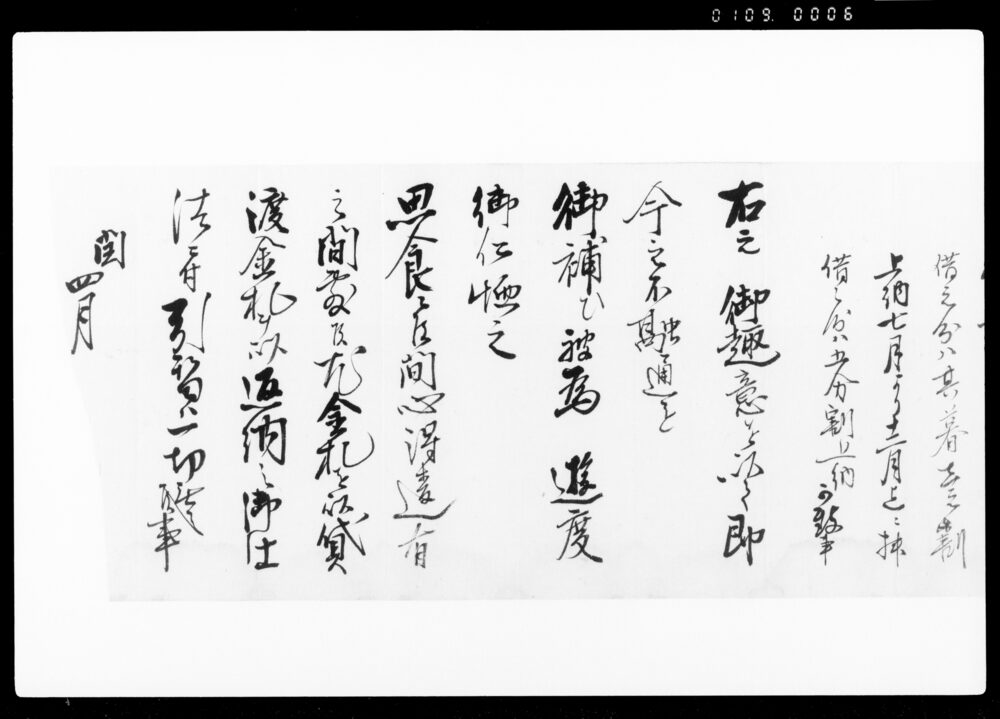 0109. 0006
借之分ハ其暮壱割
上納七月より十二月迄ニ拝
借之分ハ五分割上納可致事
右之 御趣意を以て即
今之不融通を
御補ひ被為 遊度
御仁恤之
思食ニ候間心得違有
之間敷候尤金札を以貸
渡金札を以返納之御仕
法ニ付引替ハ一切無之事
閏四月